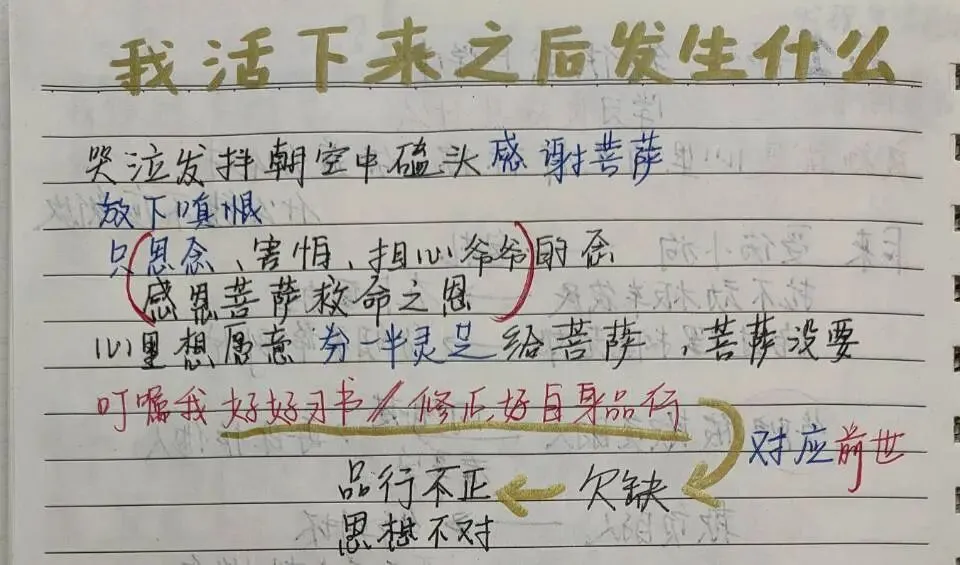 我活下来之后发生什么
哭泣发抖朝空中磕头感谢菩萨
放下嗔恨
只(思念、害怕、担心爷爷)的念
感恩菩萨救命之恩
心里想愿意分一半灵足给菩萨，菩萨没要
叮嘱我好好习书//修正好自身品行
对应前世
品行不正 ← 欠缺
思想不对